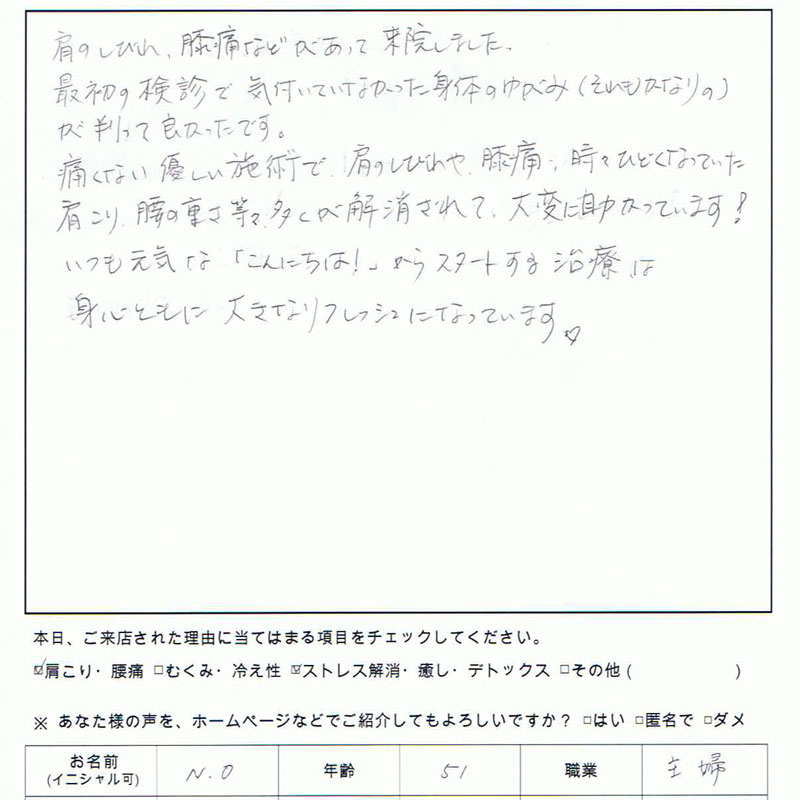 肩のしびれ、膝痛などがあって来院しました。
最初の検診で気付いていなかった身体のゆがみ(それもかなりの)
が判って良かったです。
痛くない優しい施術で、肩のしびれや、膝痛、時々ひどくなっていた
肩こり、腰の重さ等々、多くが解消されて、大変に助かっています!
いつも元気な「こんにちは!」からスタートする治療は
身心ともに大きなリフレッシュになっています♡
本日、ご来店された理由に当てはまる項目をチェックしてください。
☑肩こり・腰痛 □むくみ・冷え性 ☑ストレス解消・癒し・デトックス □その他( )
※ あなた様の声を、ホームページなどでご紹介してもよろしいですか? □はい □匿名で □ダメ
お名前 (イニシャル可) N.O 年齢 51 職業 主婦